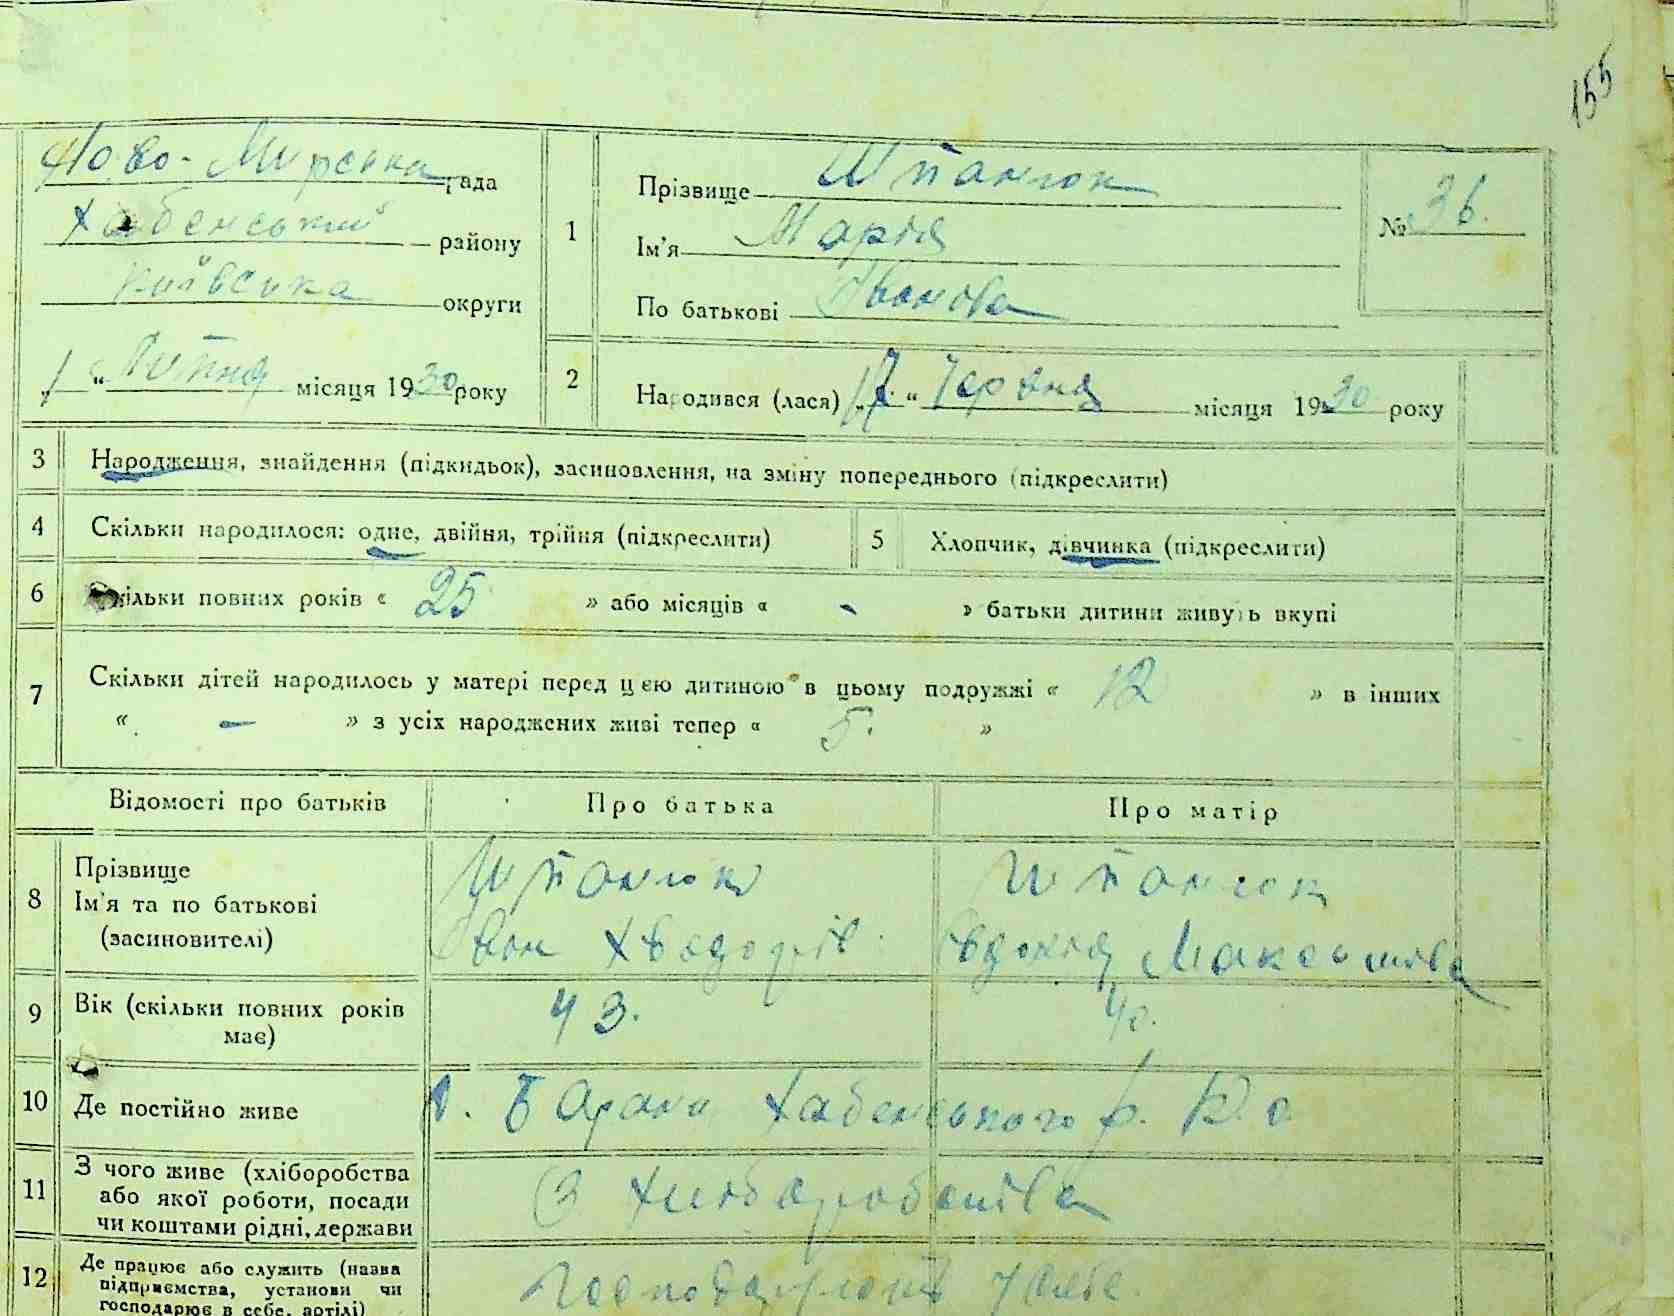 155
Ново-Мирська рада
Хабенський району
Київська округи
„1“ Липня місяця 1930 року
1
Прізвище Шпанюк
Ім'я Марія
По батькові Іванова
№ 36.
2
Народився (лася) „17“ Червня місяця 1930 року
3 Народження, знайдення (підкидьок), засиновлення, на зміну попереднього (підкреслити)
4 Скільки народилося: одне, двійня, трійня (підкреслити) 5 Хлопчик, дівчинка (підкреслити)
6 Скільки повних років « 25 » або місяців « - » батьки дитини живуть вкупі
7 Скільки дітей народилось у матері перед цією дитиною в цьому подружжі « 12 » в інших
« - » з усіх народжених живі тепер « 5. »
Відомості про батьків Про батька Про матір
8 Прізвище
Ім'я та по батькові
(засиновителі)
Шпанюк
Іван Хведорів
Шпанюк
Євдокія Максимівна
9 Вік (скільки повних років
має)
43. 40.
10 Де постійно живе
Хабенського р. К. о
11 З чого живе (хліборобства
або якої роботи, посади
чи коштами рідні, держави
З хліборобства
12 Де працює або служить (назва
підприємства, установи чи
господарює в себе, артілі)
Господарює у себе.